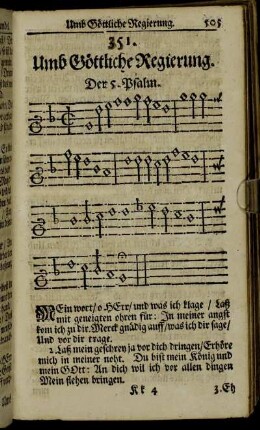 Umb Göttliche Regierung. 505
351.
Umb Göttliche Regierung.
Der 5. Psalm.
MEin wort/ o HErr/ und was ich klage / Laß
mit geneigten ohren für: In meiner angst
kom ich zu dir. Merck gnädig auff/ was ich dir sage/
Und vor dir trage.
2. Laß mein geschrey ja vor dich dringen/ Erhöre
mich in meiner noht. Du bist mein König und
mein GOtt: An dich wil ich vor allen dingen
Mein flehen bringen.
Kk 4 3. Eh